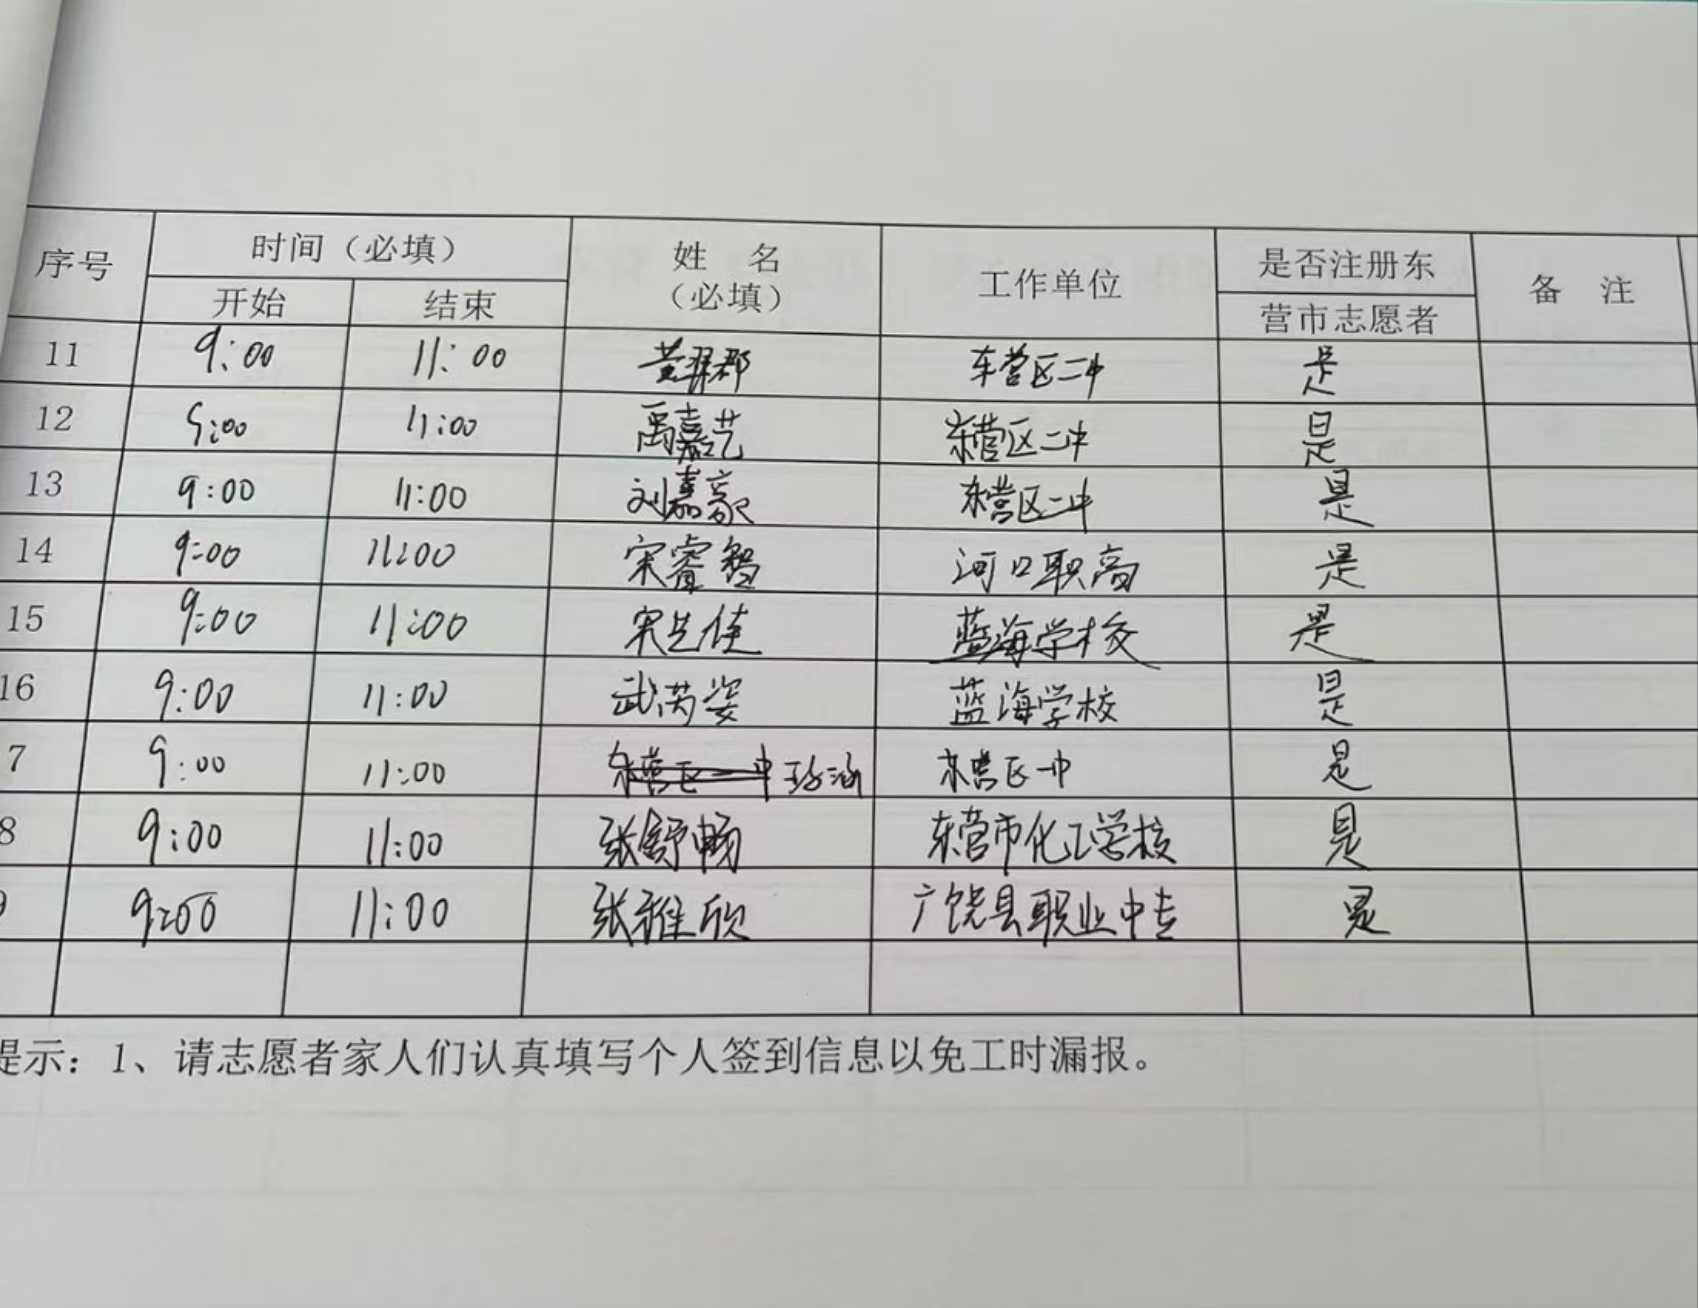 序号 时间（必填） 姓 名（必填） 工作单位 是否注册东营市志愿者 备 注
开始 结束
11 9:00 11:00 黄 郡 东营区二中 是
12 9:00 11:00 禹嘉艺 东营区二中 是
13 9:00 11:00 刘嘉豪 东营区二中 是
14 9:00 11:00 宋睿智 河口职高 是
15 9:00 11:00 宋艺佳 蓝海学校 是
16 9:00 11:00 武芮姿 蓝海学校 是
7 9:00 11:00 东营区一中 涵 东营区一中 是
8 9:00 11:00 张舒畅 东营市化工学校 是
9:00 11:00 张雅欣 广饶县职业中专 是
提示：1、请志愿者家人们认真填写个人签到信息以免工时漏报。